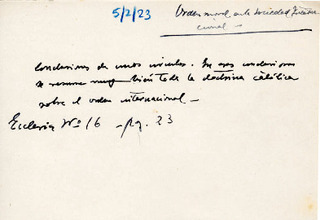 5/2/23
Orden moral en la sociedad Interna
cional —
Conclusiones de unos círculos. En esas conclusiones
se resume muy bien parte de la doctrina católica
sobre el orden internacional —
Ecclesia Nº 16 - pg. 23